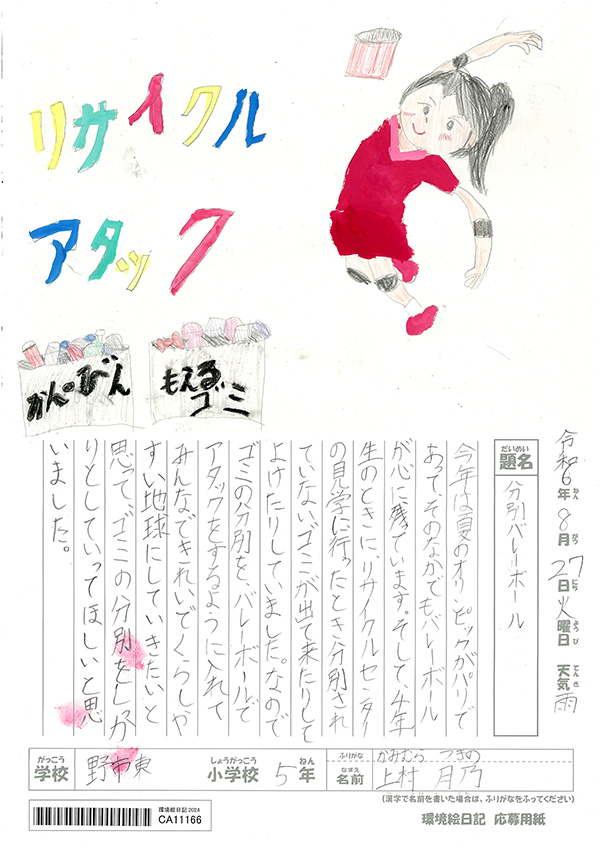 リサイクル
アタック
かん・びん
もえる
ゴミ
令和6年8月27日火曜日 天気 雨
ねん がつ にち ようび てんき
だいめい
題名
分別バレーボール
今年は夏のオリンピックがパリで
あって、そのなかでもバレーボール
が心に残ています。そして、4年
生のときに、リサイクルセンター
の見学に行ったとき分別され
ていないゴミが出て来たりして
よけたりしていました。なので
ゴミの分別を、バレーボールで
アタックをするように入れて
みんなできれいでくらしや
すい地球にしていきたいと
思って、ゴミの分別をしっか
りとしていってほしいと思
いました。
がっこう
学校
野市東
しょうがっこう
小学校
5年
ねん
ふりがな
かみむら つきの
なまえ
名前
上村 月乃
(漢字で名前を書いた場合は、ふりがなをふってください)
環境絵日記2024
CA11166
環境絵日記 応募用紙